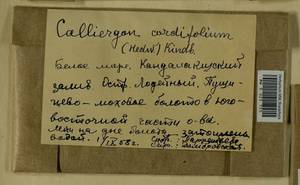 Calliergon cordifolium
(Hedw.) Kindb.
Белое море. Кандалакшский
залив. Остр. Лодейный. Пуши-
цево-моховое болото в юго-
восточной части о-ва.
на дне болота затоплена
водой. 1/IX 58 г.